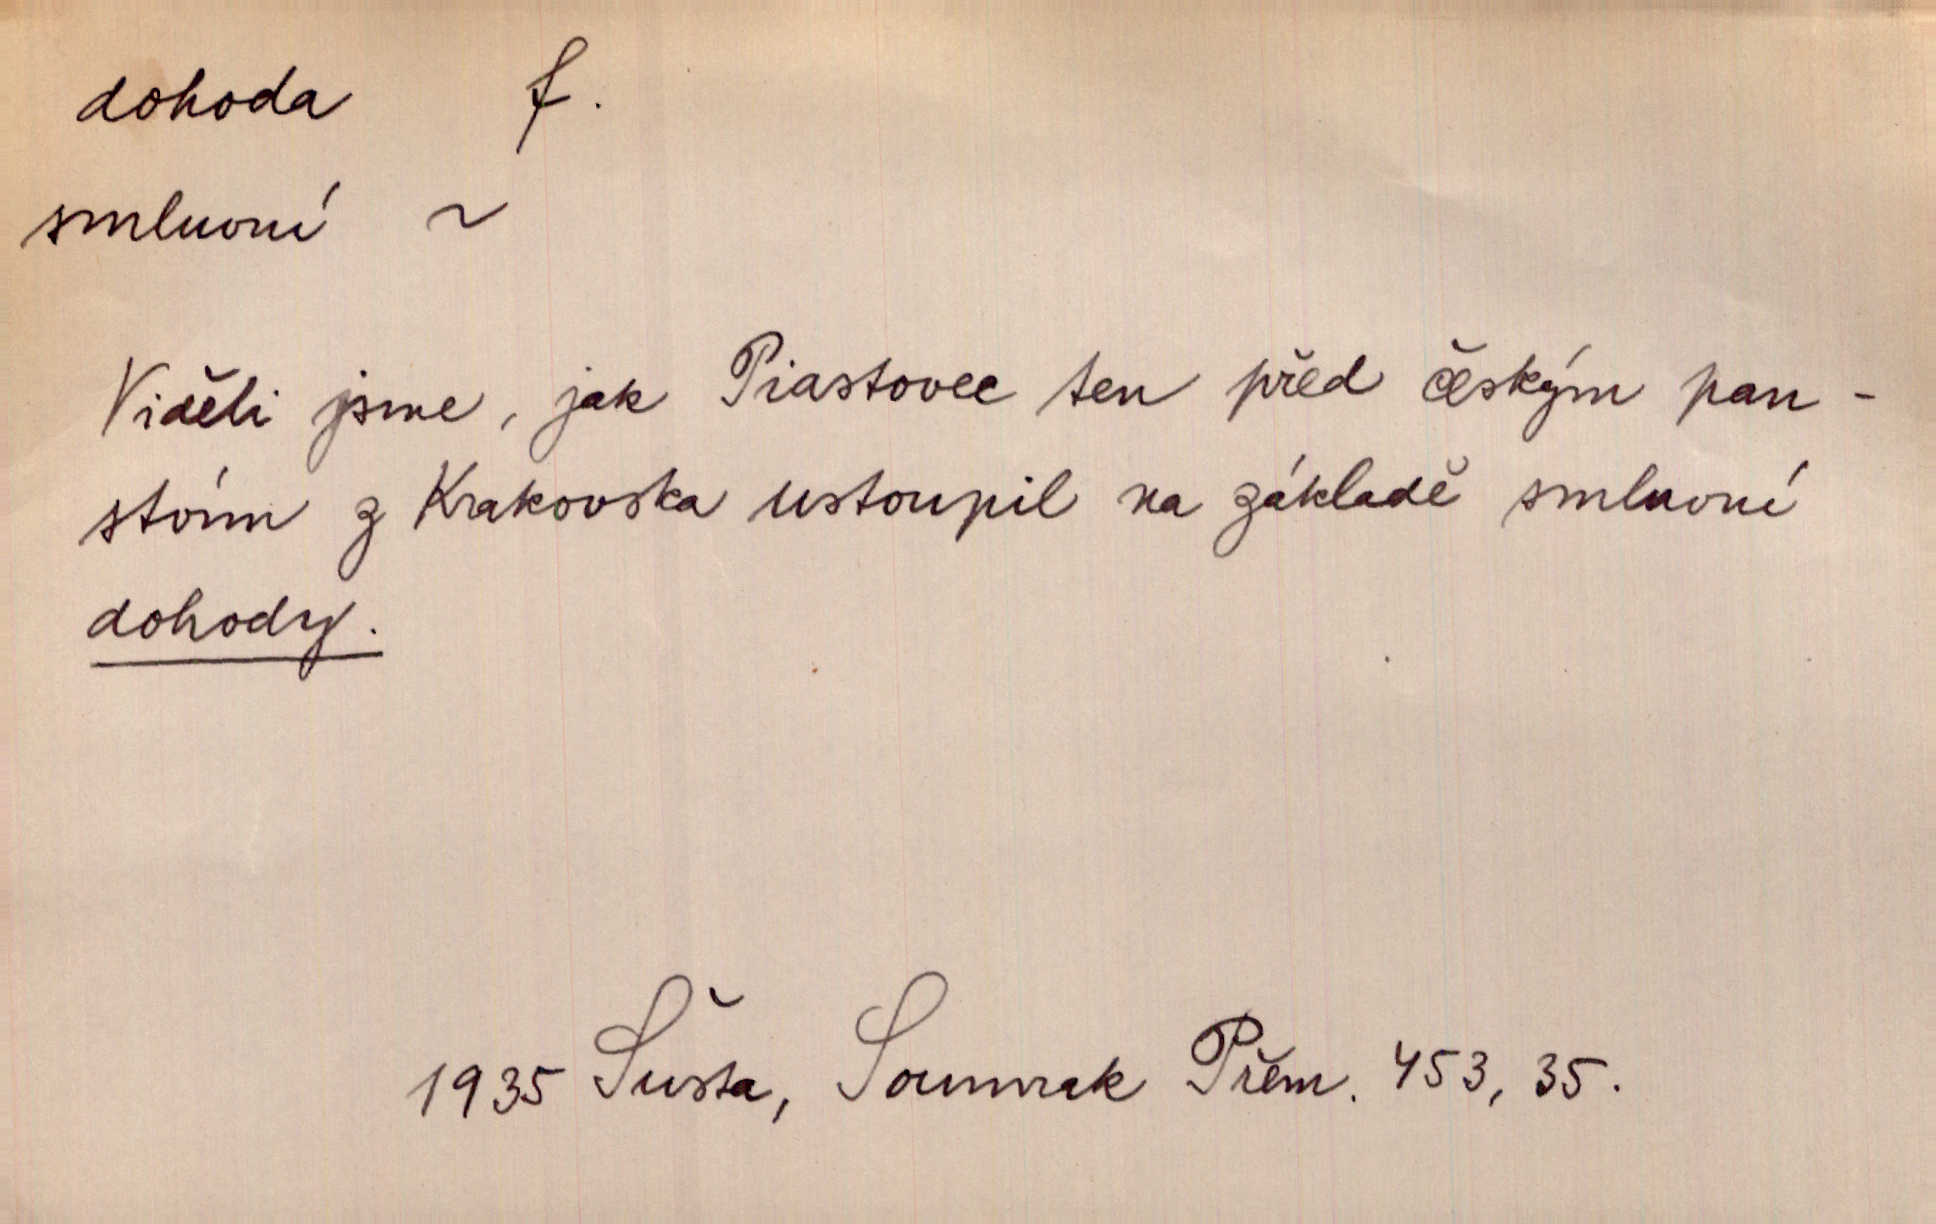 dohoda f.
smluvní ~
Viděli jsme, jak Piastovec ten před českým pan-
stvím z Krakovska ustoupil na základě smluvní
dohody.
1935 Šusta, Soumrak Přem. 453, 35.